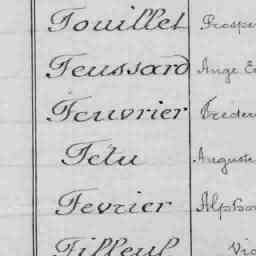 Feuillet Prospe
Feussard Ange
Feuvrier Frederi
Fétu Auguste
Fevrier Alphon
Filleul Vic